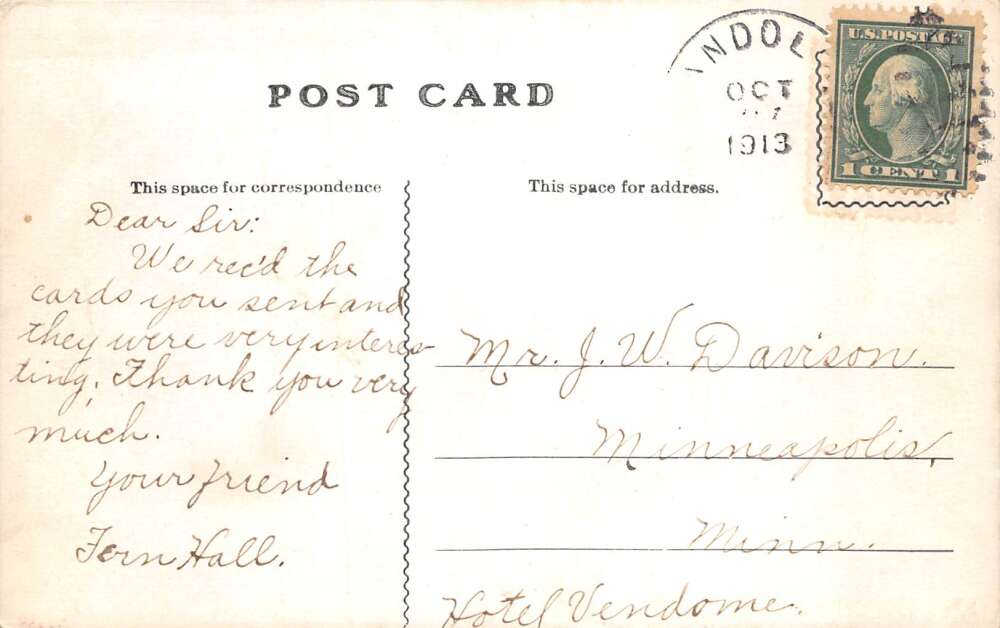 POST CARD
OCT
1913
U.S. POSTAGE
1 CENT 1
This space for correspondence
This space for address.
Dear Sir:
We rec'd the
cards you sent and
they were very interes-
ting. Thank you very
much.
Your friend
Fern Hall.
Mr. J. W. Davison.
Minneapolis,
Minn.
Hotel Vendome.